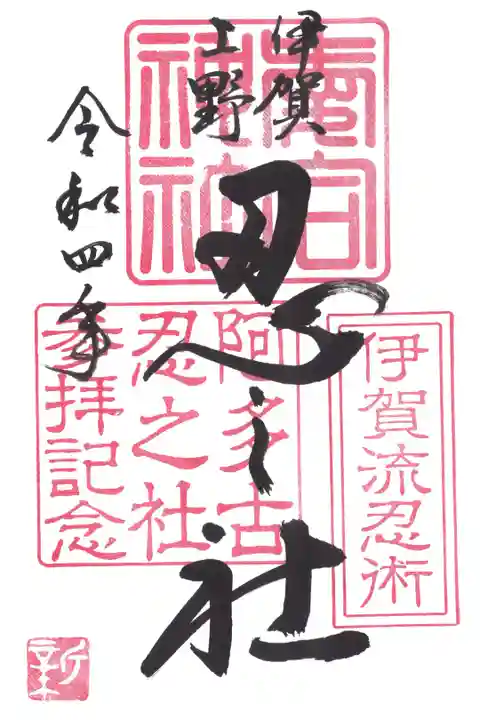 伊賀
上野
忍之社
令和四年
愛宕
神社
阿多古
忍之社
参拝記念
伊賀流忍術
新